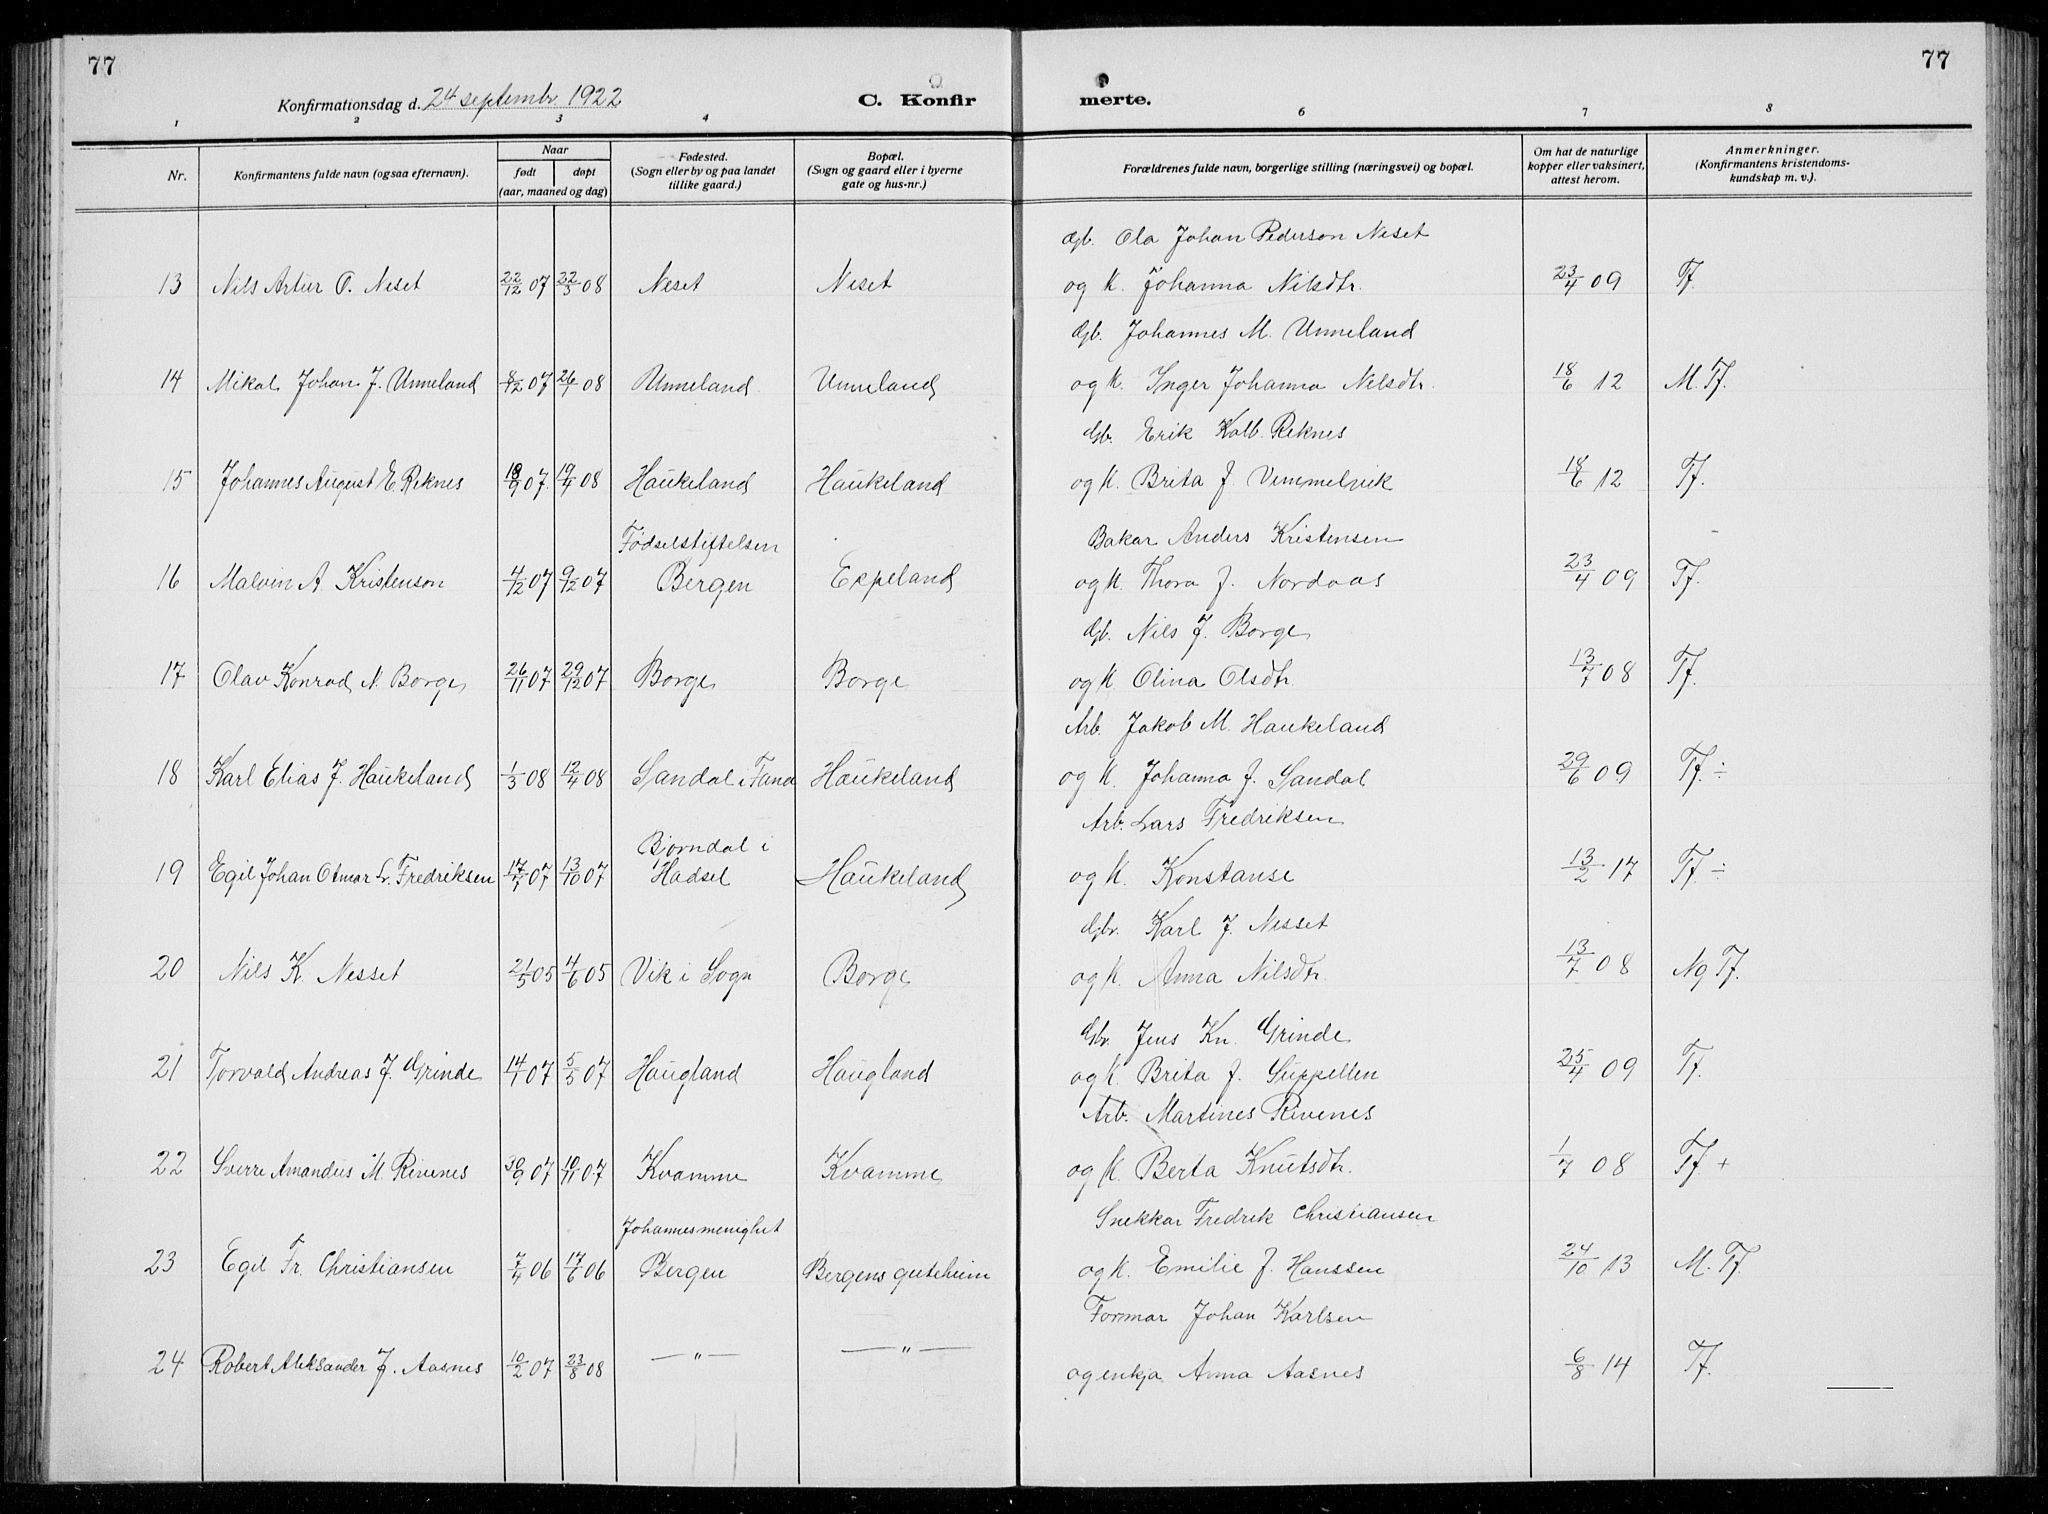 77
77
Konfirmationsdag d. 24 septembr. 1922
C. Konfir merte.
1 2 3 4 6 7 8
Nr.
Konfirmantens fulde navn (ogsaa efternavn).
Naar
født døpt
(aar, maaned og dag)
Fødested.
(Sogn eller by og paa landet
tillike gaard.)
Bopæl.
(Sogn og gaard eller i byerne
gate og hus-nr.)
Forældrenes fulde navn, borgerlige stilling (næringsvei) og bopæl.
Om hat de naturlige
kopper eller vaksinert,
attest herom.
Anmerkninger.
(Konfirmantens kristendoms-
kundskap m. v.).
Gb. Ola Johan Pederson Neset
13 Nils Artur O. Neset 22/12 07 22/3 08 Neset Neset og K. Johanna Nilsdtr. 23/4 09 Tf.
Gb. Johannes M. Unneland
14 Mikal Johan J. Unneland 8/12 07 26/1 08 Unneland Unneland og K. Inger Johanna Nilsdtr. 18/6 12 M. Tf.
Gb. Erik Kolb. Reknes
15 Johannes August E. Reknes 18/9 07 19/4 08 Haukeland Haukeland og K. Brita J. Vemmelvik 18/6 12 Tf.
Fødselstiftelsen Bakar Anders Kristensen
16 Malvin A. Kristenson 4/12 07 9/12 07 Bergen Expeland og K. Thora J. Nordaas 23/4 09 Tf.
Gb. Nils J. Borge
17 Olav Konrad N. Borge 26/11 07 29/12 07 Borge Borge og K. Olina Olsdtr. 13/7 08 Tf.
Arb. Jakob M. Haukeland
18 Karl Elias J. Haukeland 1/3 08 12/4 08 Sandal i Fana Haukeland og K. Johanna J. Sandal 29/6 09 Tf. ÷
Arb. Lars Fredriksen
Bjørndal i
19 Egil Johan Otmar L. Fredriksen 17/7 07 13/10 07 Hadsel Haukeland og K. Konstanse 13/2 17 Tf. ÷
Gbr. Karl J. Nesset
20 Nils K. Nesset 21/5 05 4/6 05 Vik i Sogn Borge og K. Anna Nilsdtr. 13/7 08 Ng Tf.
Gbr. Jens Kn. Grinde
21 Torvald Andreas J. Grinde 14/1 07 5/5 07 Haugland Haugland og K. Brita J. Suppellen 25/4 09 Tf.
Arb. Martines Rivenes
22 Sverre Amandus M. Rivenes 30/9 07 10/11 07 Kvamme Kvamme og K. Berta Knutsdtr. 1/7 08 Tf. +
Johannesmenighet Snekkar Fredrik Christiansen
23 Egil Fr. Christiansen 7/4 06 17/6 06 Bergen Bergens guteheim og K. Emilie J. Hanssen 24/10 13 M. Tf.
Formar Johan Karlsen
24 Robert Aleksander J. Aasnes 10/2 07 23/8 08 — " — — " — og enkja Anna Aasnes 6/8 14 Tf.